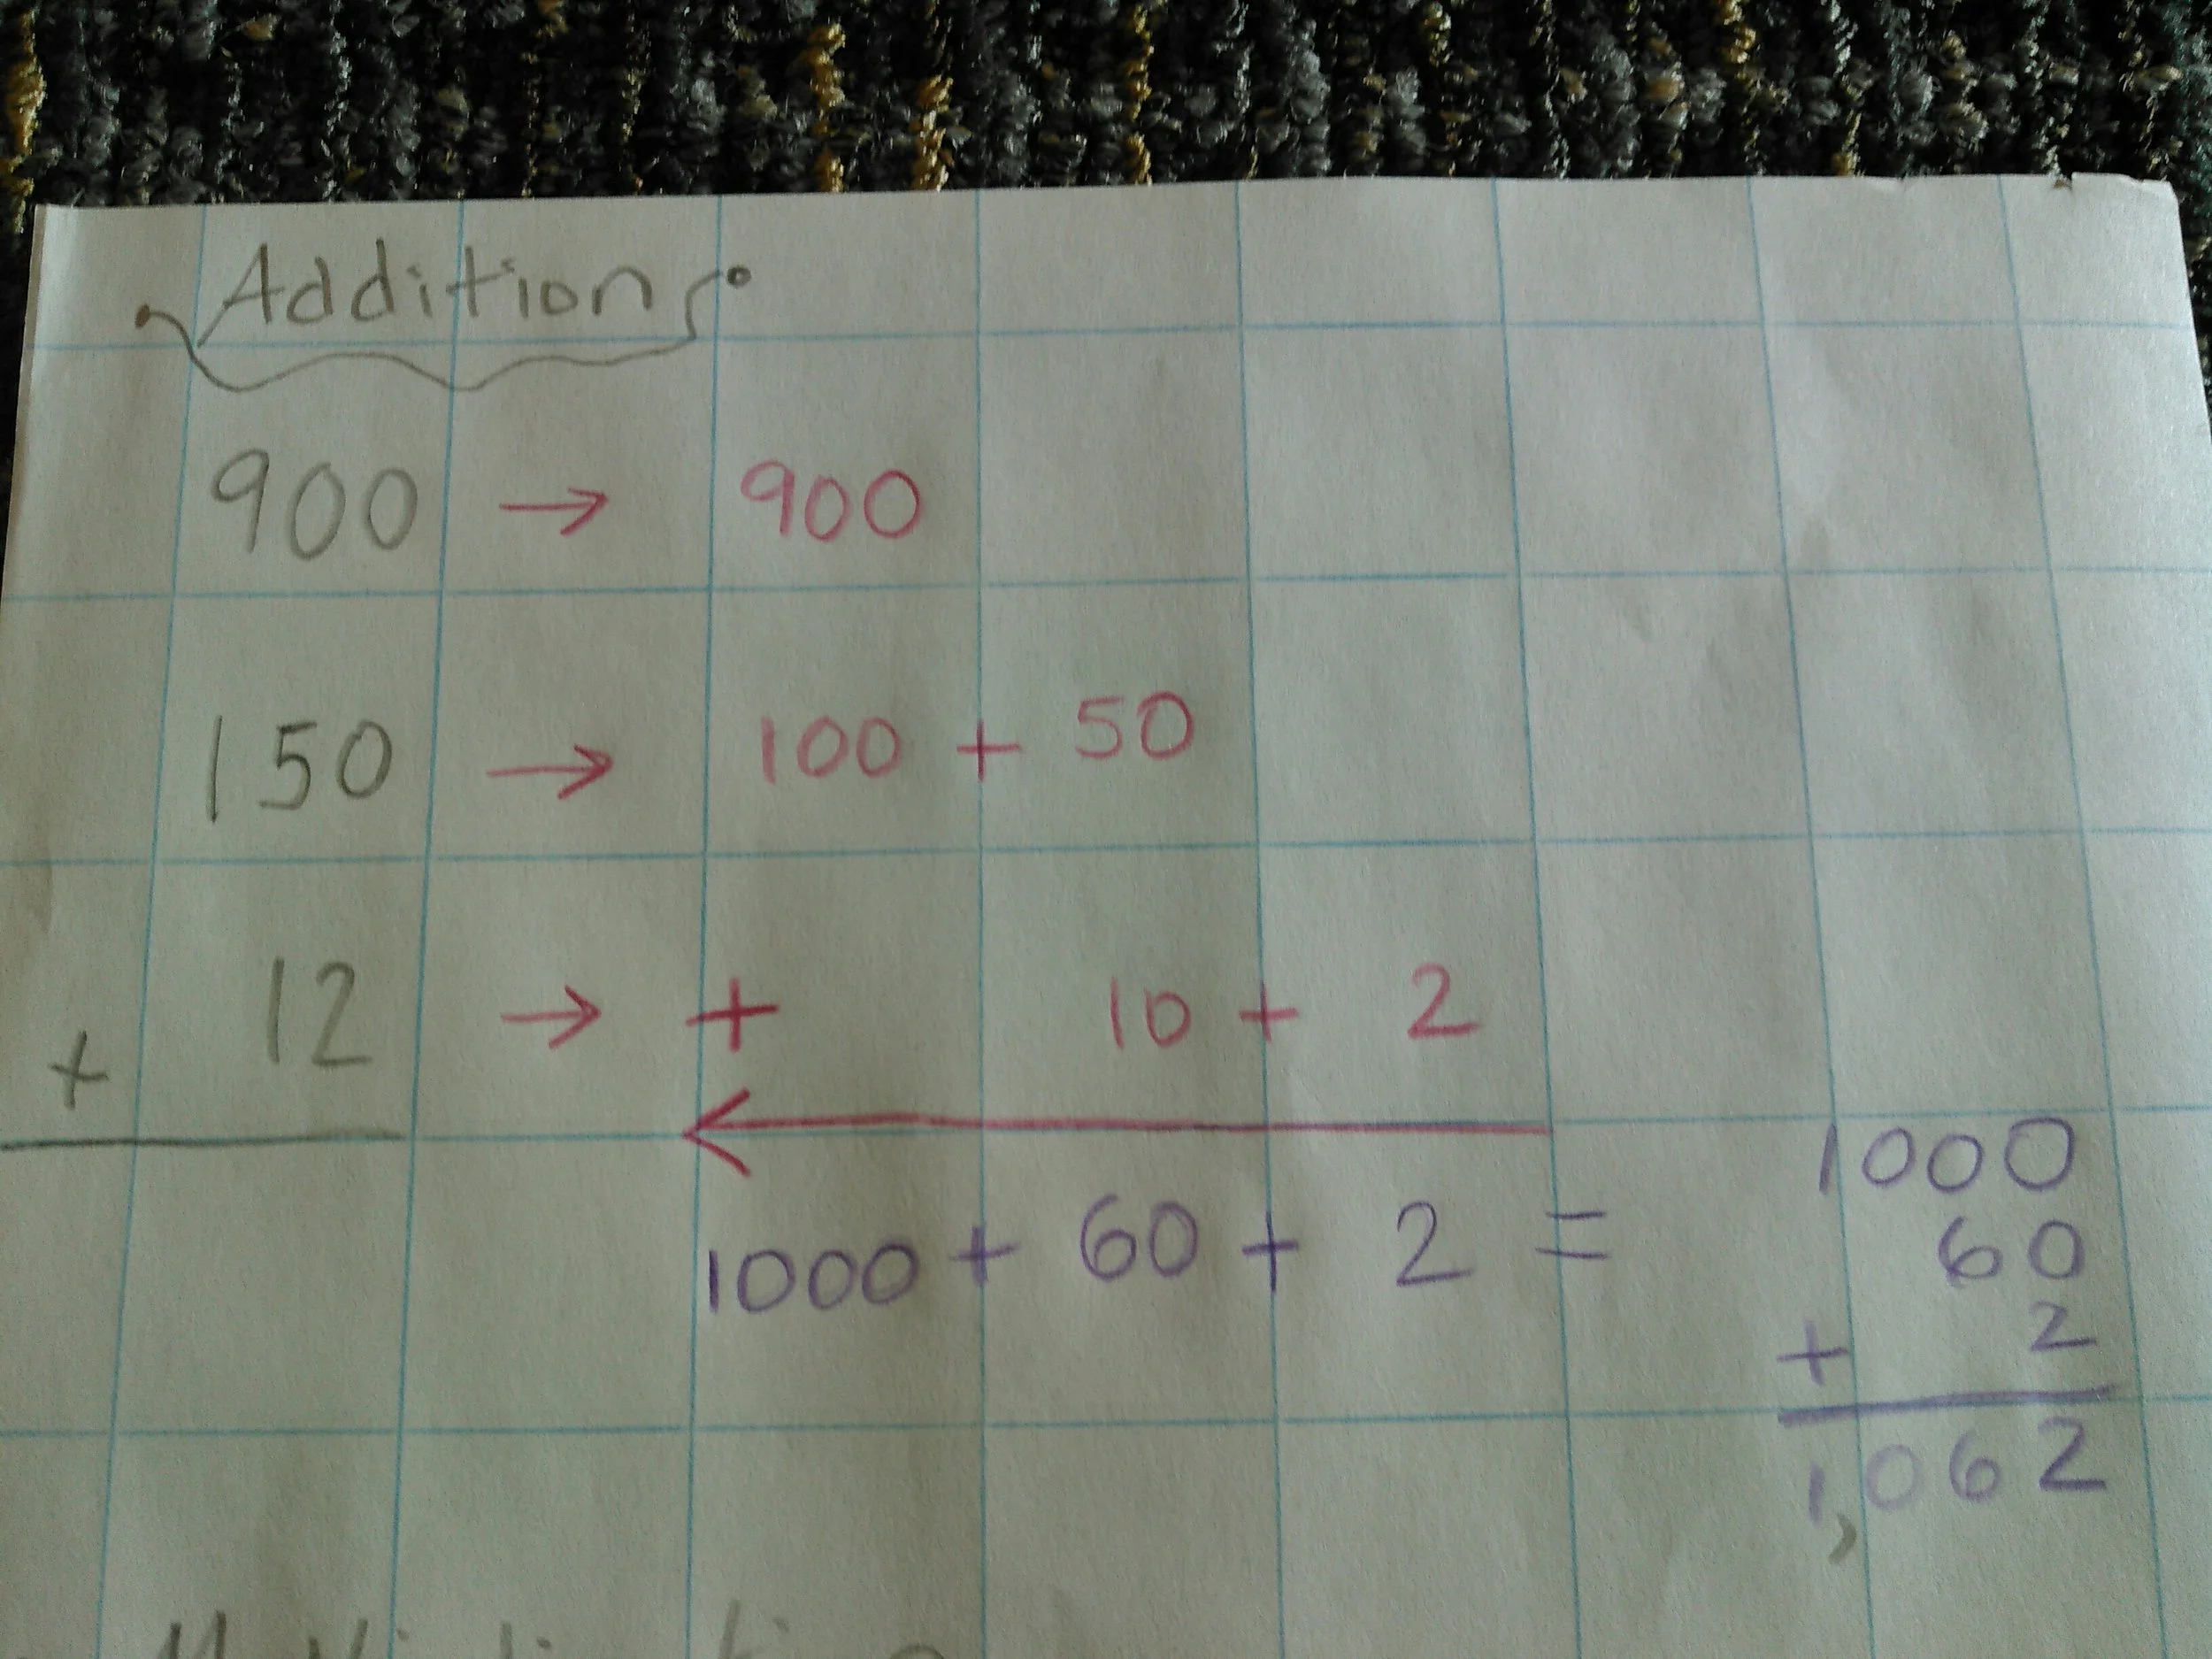 Addition
900 → 900
150 → 100 + 50
+ 12 → + 10 + 2
1000 + 60 + 2 =
1000
60
+ 2
1,062